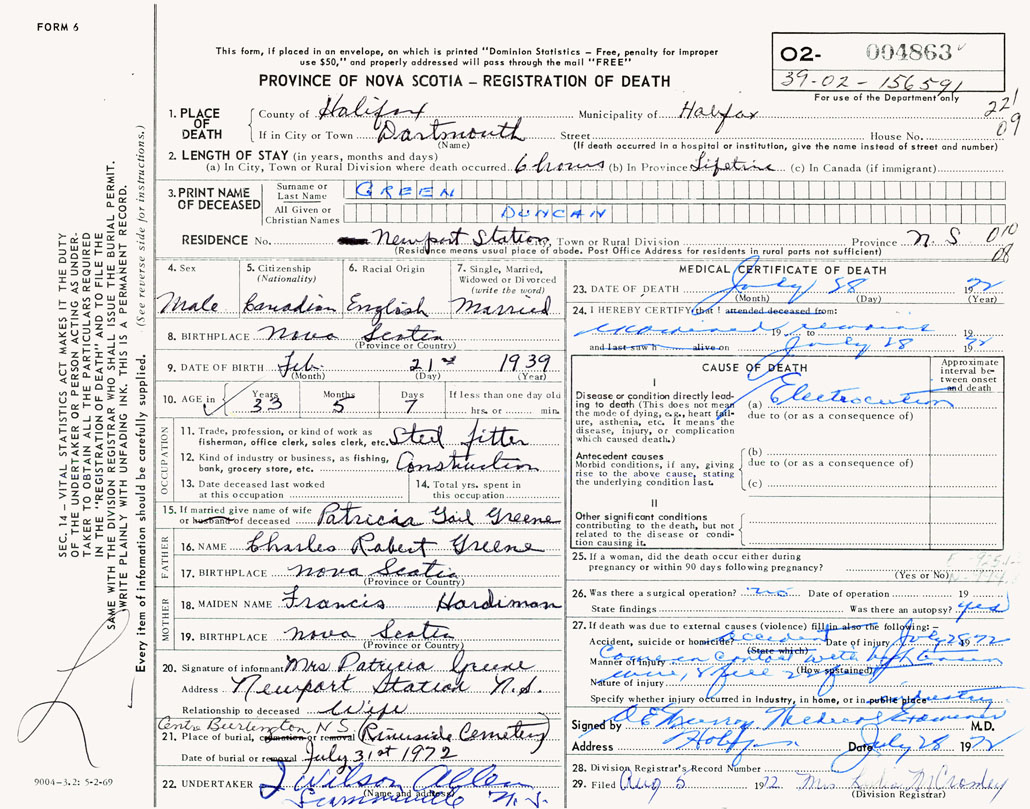 FORM 6
This form, if placed in an envelope, on which is printed "Dominion Statistics – Free, penalty for improper
use $50," and properly addressed will pass through the mail "FREE"
PROVINCE OF NOVA SCOTIA – REGISTRATION OF DEATH
O2- 004863
39-02-156591
For use of the Department only
221
09
1. PLACE OF DEATH
County of Halifax Municipality of Halifax
If in City or Town Dartmouth Street House No.
(Name) (If death occurred in a hospital or institution, give the name instead of street and number)
2. LENGTH OF STAY (in years, months and days)
(a) In City, Town or Rural Division where death occurred 6 hours (b) In Province Lifetime (c) In Canada (if immigrant)
3. PRINT NAME OF DECEASED
Surname or Last Name GREEN
All Given or Christian Names DUNCAN
RESIDENCE No. Newport Station, Town or Rural Division Province N.S 010
08
(Residence means usual place of abode. Post Office Address for residents in rural parts not sufficient)
4. Sex
Male
5. Citizenship (Nationality)
Canadian
6. Racial Origin
English
7. Single, Married, Widowed or Divorced (write the word)
Married
8. BIRTHPLACE Nova Scotia
(Province or Country)
9. DATE OF BIRTH Feb. 21st 1939
(Month) (Day) (Year)
10. AGE in Years 33 Months 5 Days 7 If less than one day old
hrs. or min.
OCCUPATION
11. Trade, profession, or kind of work as
fisherman, office clerk, sales clerk, etc. Steel fitter
12. Kind of industry or business, as fishing,
bank, grocery store, etc. Construction
13. Date deceased last worked
at this occupation
14. Total yrs. spent in
this occupation
15. If married give name of wife
or husband of deceased Patricia Gail Greene
FATHER
16. NAME Charles Robert Greene
17. BIRTHPLACE Nova Scotia
(Province or Country)
MOTHER
18. MAIDEN NAME Francis Hardiman
19. BIRTHPLACE Nova Scotia
(Province or Country)
20. Signature of informant Mrs Patricia Greene
Address Newport Station N.S.
Relationship to deceased Wife
Centre Burlington N.S
21. Place of burial, cremation or removal Riverside Cemetery
Date of burial or removal July 31st 1972
22. UNDERTAKER J Wilson Allen
(Name and address)
N.S.
MEDICAL CERTIFICATE OF DEATH
23. DATE OF DEATH July 28 1972
(Month) (Day) (Year)
24. I HEREBY CERTIFY that I attended deceased from:
examined remains 19 to 19
and last saw h alive on July 28 1972
CAUSE OF DEATH
Approximate interval between onset and death
I
Disease or condition directly leading to death (This does not mean
the mode of dying, e.g., heart failure, asthenia, etc. It means the
disease, injury, or complication
which caused death.)
(a) Electrocution
due to (or as a consequence of)
Antecedent causes
Morbid conditions, if any, giving
rise to the above cause, stating
the underlying condition last.
(b)
due to (or as a consequence of)
(c)
II
Other significant conditions
contributing to the death, but not
related to the disease or condition causing it.
25. If a woman, did the death occur either during
pregnancy or within 90 days following pregnancy?
(Yes or No)
26. Was there a surgical operation? no Date of operation 19
State findings Was there an autopsy? yes
27. If death was due to external causes (violence) fill in also the following: –
Accident, suicide or homicide? accident Date of injury July 28 1972
(State which)
Manner of injury Came in contact with
(How sustained)
Nature of injury
Specify whether injury occurred in Industry, in home, or in public place industry
Signed by O E Murray Medical Examiner M.D.
Address Halifax Date July 28 1972
28. Division Registrar's Record Number
29. Filed Aug 5 1972 Mrs
(Division Registrar)
SEC. 14 – VITAL STATISTICS ACT MAKES IT THE DUTY
OF THE UNDERTAKER OR PERSON ACTING AS UNDERTAKER
TO OBTAIN ALL THE PARTICULARS REQUIRED
IN THE "REGISTRATION OF DEATH" AND TO FILE THE
SAME WITH THE DIVISION REGISTRAR WHO SHALL ISSUE THE BURIAL PERMIT.
WRITE PLAINLY WITH UNFADING INK. THIS IS A PERMANENT RECORD.
Every item of information should be carefully supplied. (See reverse side for instructions.)
9004-3.2: 5-2-69